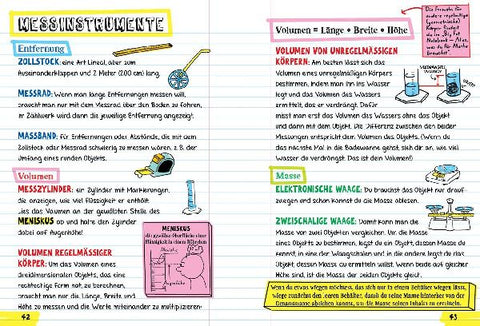 MESSINSTRUMENTE
Entfernung
ZOLLSTOCK: eine Art Lineal, aber zum
Auseinanderklappen und 2 Meter (200 cm) lang.
MESSRAD: Wenn man lange Entfernungen messen will,
braucht man nur mit dem Messrad über den Boden zu fahren,
ihr Zählwerk wird dann die jeweilige Entfernung angezeigt.
MASSBAND: für Entfernungen oder Abstände, die mit dem
Zollstock oder Messrad schwierig zu messen wären, z. B. der
Umfang eines runden Objekts.
Volumen
MESSZYLINDER: ein Zylinder mit Markierungen,
die anzeigen, wie viel Flüssigkeit er enthält.
Lies das Volumen an der gewölbten Stelle des
MENISKUS ab und halte den Zylinder
dabei auf Augenhöhe!
MENISKUS
die gewölbte Oberfläche einer
Flüssigkeit in einem Röhrchen
VOLUMEN REGELMÄSSIGER
KÖRPER: Um das Volumen eines
dreidimensionalen Objekts, das eine
rechteckige Form hat, zu berechnen,
braucht man nur die Länge, Breite und
Höhe zu messen und die Werte miteinander zu multiplizieren.
42
Volumen = Länge • Breite • Höhe
VOLUMEN VON UNREGELMÄSSIGEN
KÖRPERN: Am besten lässt sich das
Volumen eines unregelmäßigen Körpers
bestimmen, indem man ihn ins Wasser
legt und das Volumen des Wassers
ermittelt, das er verdrängt. Dafür
misst man erst das Volumen des Wassers ohne das Objekt
und dann mit dem Objekt. Die Differenz zwischen den beiden
Messungen entspricht dem Volumen des Objekts. (Wenn du
das nächste Mal in die Badewanne gehst, sieh dir an, wie viel
Wasser du verdrängst. Das ist dein Volumen!)
Masse
ELEKTRONISCHE WAAGE: Du brauchst das Objekt nur drauf-
zulegen und schon kannst du die Masse ablesen.
ZWEISCHALIGE WAAGE: Damit kann man die
Masse von zwei Objekten vergleichen. Um die Masse
eines Objekts zu bestimmen, legst du ein Objekt, dessen Masse du
kennst, in eine der Waagschalen und in die andere legst du das
Objekt dessen Masse du ermitteln willst. Wenn beide auf gleicher
Höhe sind, ist die Masse der beiden Objekte gleich.
Wenn du etwas wiegen möchtest, das sich nur in einem Behälter wiegen lässt,
wiege zunächst den leeren Behälter, damit du seine Masse hinterher von der
Gesamtmasse abziehen kannst, um die Masse seines Inhalts zu erhalten.
43